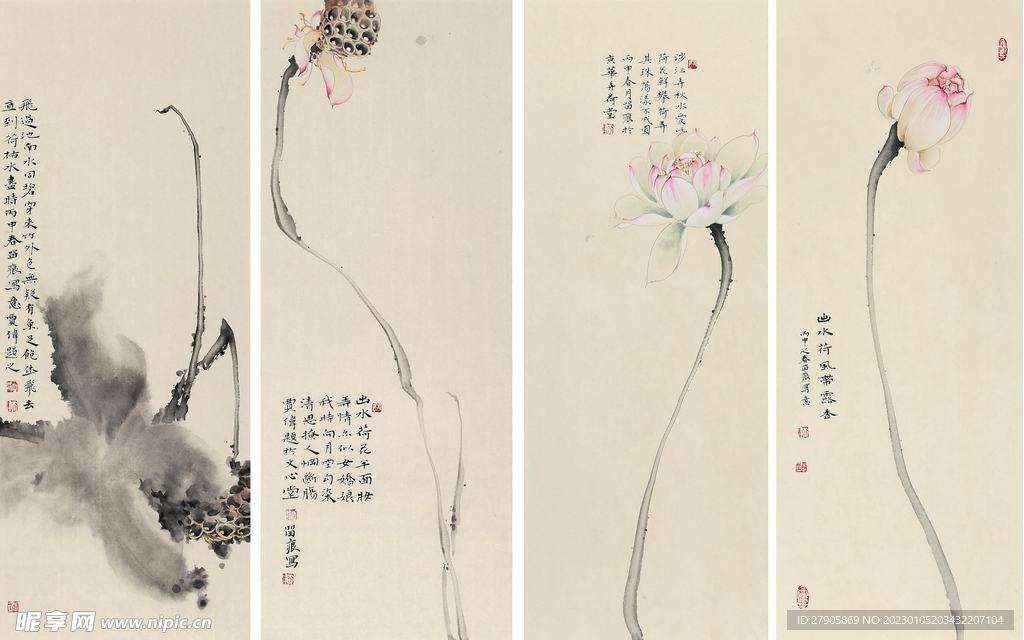 飛過池南水同碧穿來竹外色無疑有魚足飽休飛去
直到荷枯水盡時丙申春留痕寫意賈偉題之
出水荷花半面妝
弄情亦似女嬌娘
我時向月空勾染
清思撩人惘斷腸
賈偉題於文心堂
留痕寫
涉江弄秋水愛此
荷花鮮攀荷弄
其珠蕩漾不成圓
丙申春月留痕於
京華弄荷堂
出水荷風帶露香
丙申之春留痕寫意
昵享网 www.nipic.cn
ID:27905869 NO:20230105203432207104